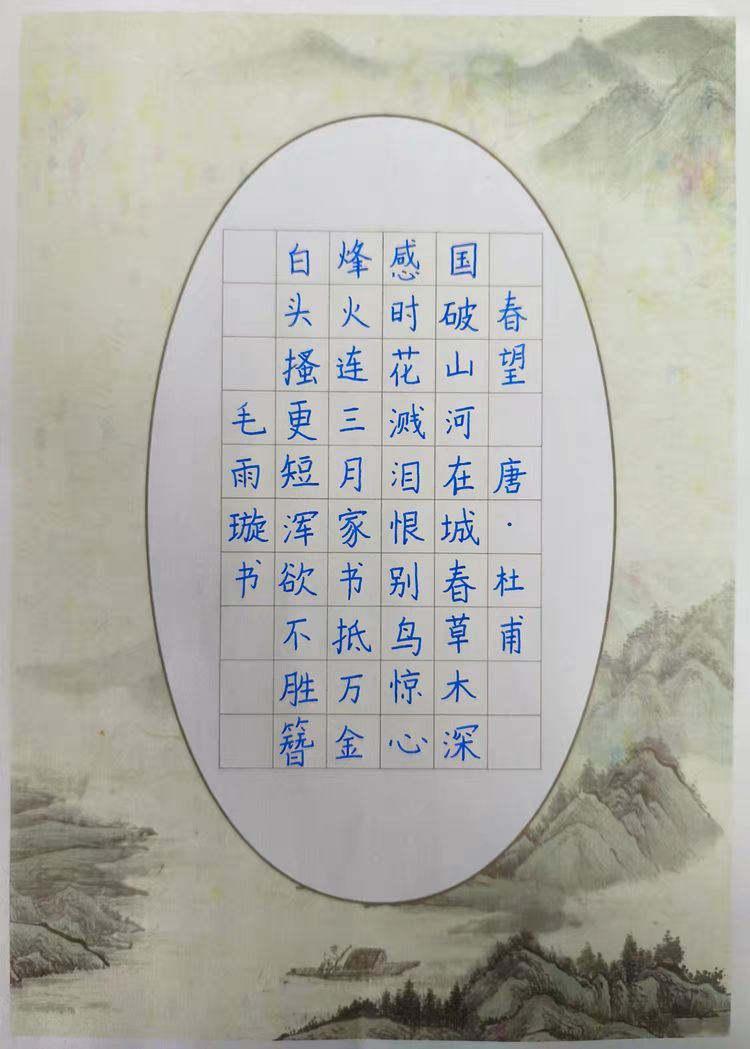 春望 唐·杜甫
国破山河在城春草木深
感时花溅泪恨别鸟惊心
烽火连三月家书抵万金
白头搔更短浑欲不胜簪
毛雨璇书